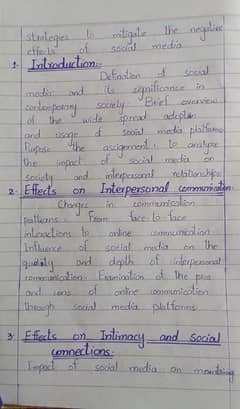 strategies to mitigate the negative
effects of social media
1. Introduction:
Definition of social
media and its significance in
contemporary society. Brief overview
of the wide spread adoption
and usage of social media platforms
Purpose the assignment: to analyze
the impact of social media on
society and interpersonal relationships
2. Effects on Interpersonal communication
Changes in communication
patterns. From face-to-face
interactions to online communication.
Influence of social media on the
quality and depth of interpersonal
communication. Examination of the pros
and cons of online communication
through social media platforms.
3. Effects on Intimacy and Social
connections:
Impact of social media on maintaining